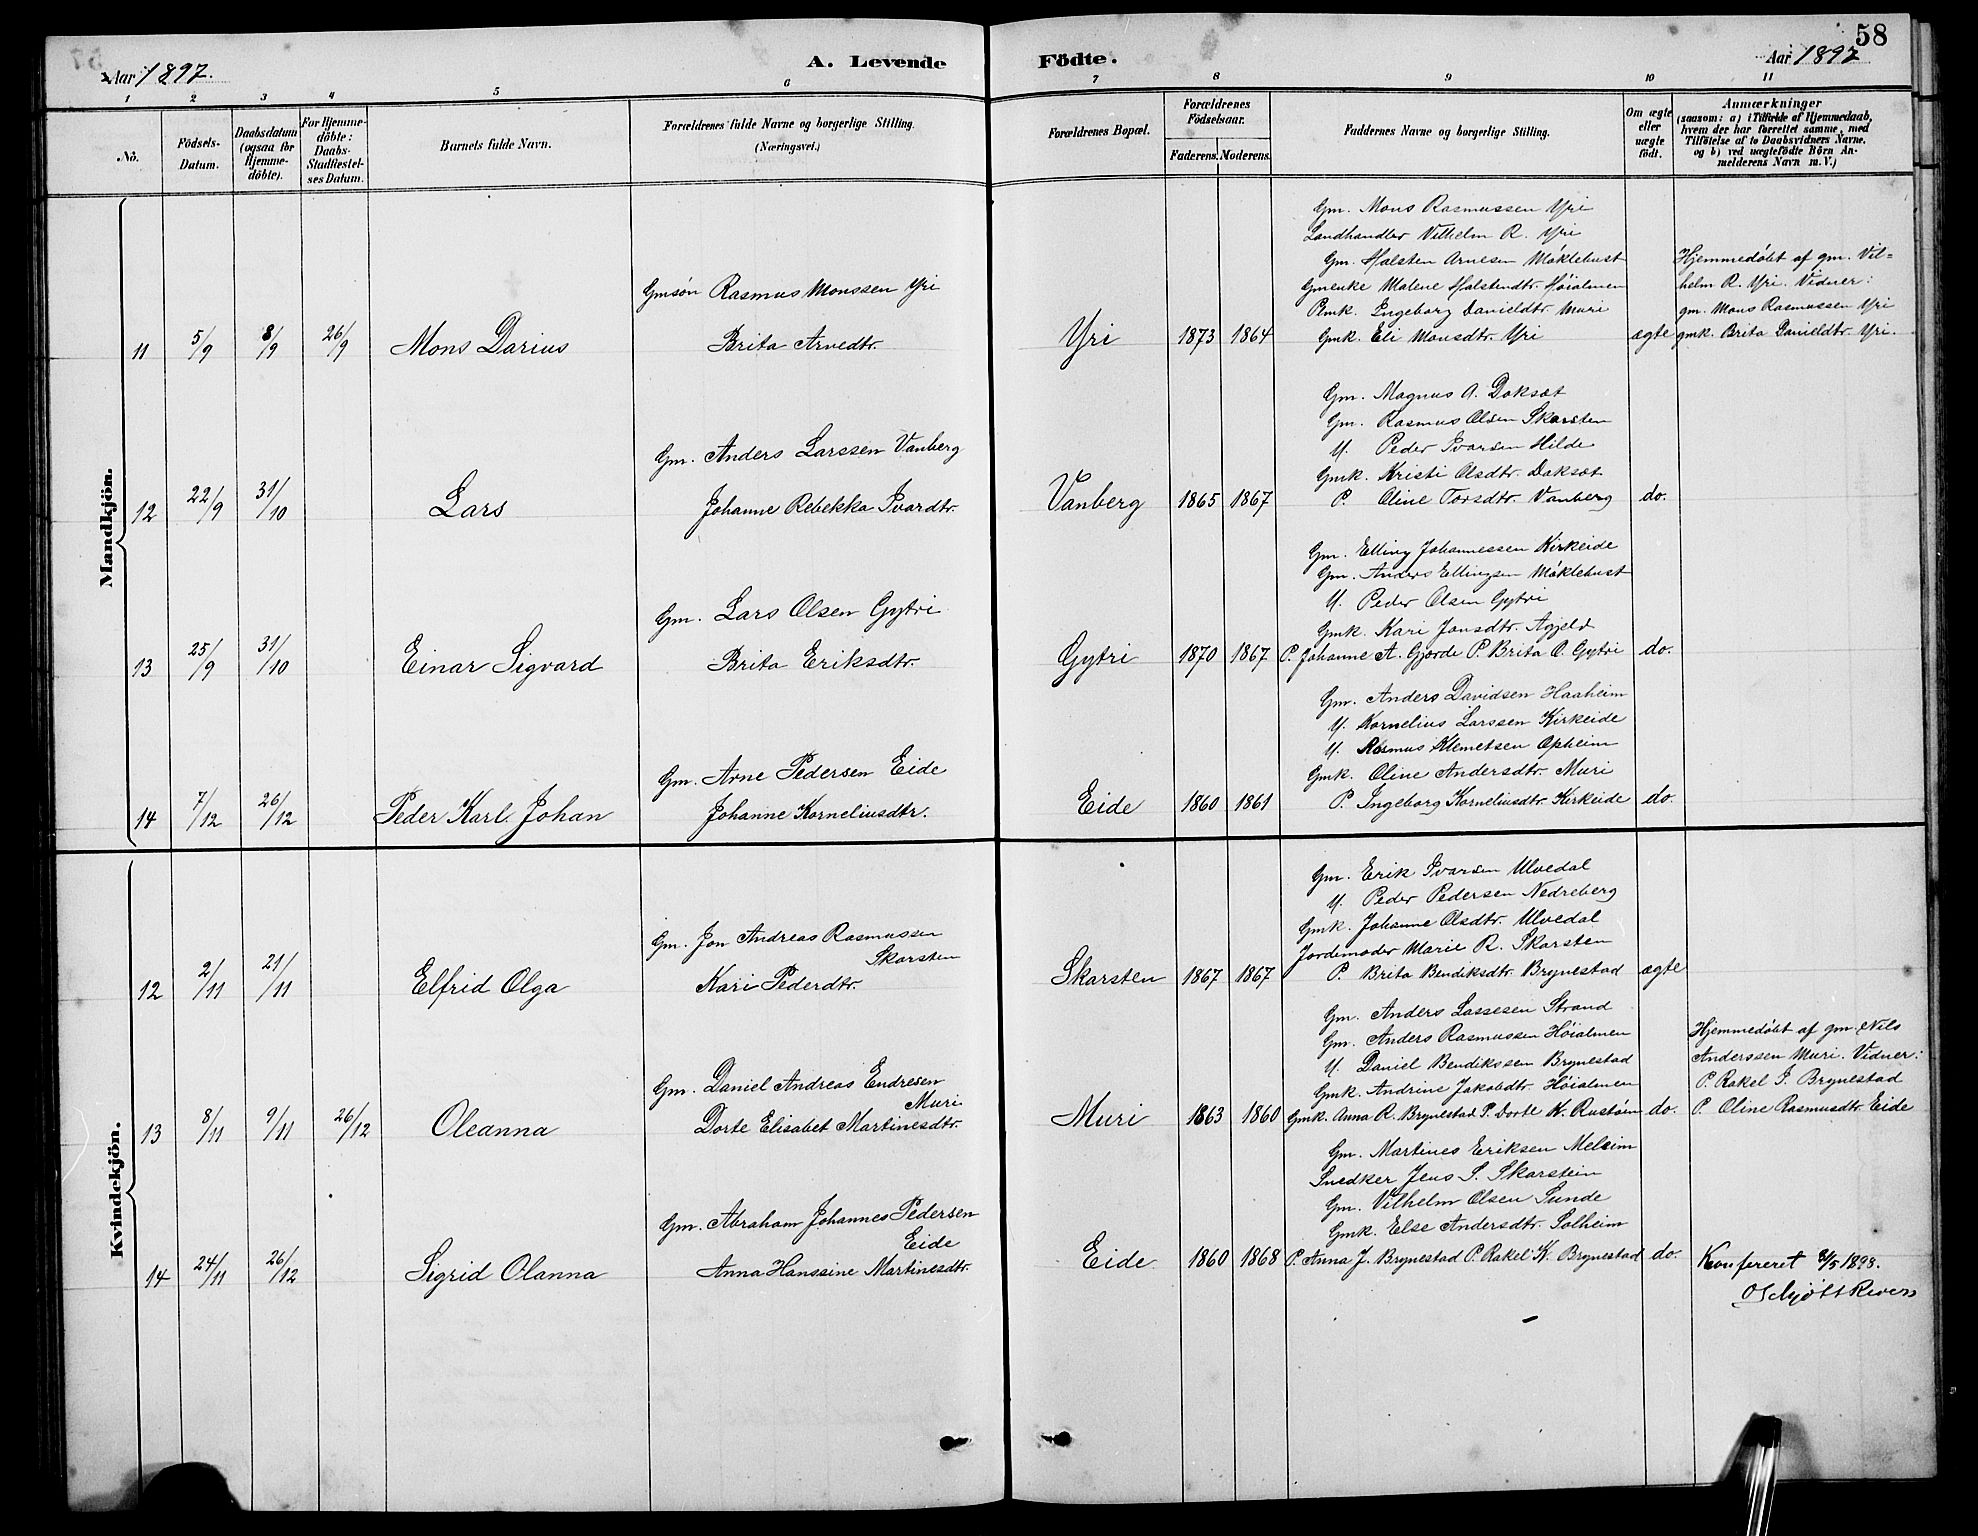 58
Aar 1897. A. Levende Födte. Aar 1897
1 2 3 4 5 6 7 8 9 10 11
No.
Födsels-
Datum.
Daabsdatum
(ogsaa for
Hjemme-
döbte).
For Hjemme-
döbte:
Daabs-
Stadfæstel-
ses Datum.
Barnets fulde Navn.
Forældrenes fulde Navne og borgerlige Stilling.
(Næringsvei.)
Forældrenes Bopæl.
Forældrenes
Födselsaar.
Faderens. Moderens.
Faddernes Navne og borgerlige Stilling.
Om ægte
eller
uægte
födt.
Anmærkninger
(saasom: a) i Tilfælde af Hjemmedaab,
hvem der har forrettet samme, med
Tilföielse af to Daabsvidners Navne,
og b) ved uægtefödte Börn An-
melderens Navn m.V.)
Mandkjön.
11 5/9 8/9 26/9 Mons Darius
Gmsøn Rasmus Monssen Yri
Brita Arnedtr.
Yri 1873 1864
Gm. Mons Rasmussen Yri
Landhandler Vilhelm R. Yri
Gm. Halsten Arnesen Møklebust
Gmenke Malene Halstendtr. Høialmen
Pmk. Ingeborg Danieldtr. Muri
Gmk. Eli Monsdtr. Yri
ægte
Hjemmedøbt af gm. Vil-
helm R. Yri. Vidner:
gm. Mons Rasmussen Yri
gmk. Brita Danieldtr. Yri.
12 22/9 31/10 Lars
Gm. Anders Larssen Vanberg
Johanne Rebekka Ivardtr.
Vanberg 1865 1867
Gm. Magnus A. Doksæt
Gm. Rasmus Olsen Skarsten
U. Peder Ivarsen Hilde
Gmk. Kristi Olsdtr. Doksæt
P. Oline Torsdtr. Vanberg
do.
13 25/9 31/10 Einar Sigvard
Gm. Lars Olsen Gytri
Brita Eriksdtr.
Gytri 1870 1867
Gm. Elling Johannessen Kirkeide
Gm. Anders Ellingsen Møklebust
U. Peder Olsen Gytri
Gmk. Kari Jonsdtr. Agjeld
P. Johanne A. Gjørde P. Brita O. Gytri
do.
14 7/12 26/12 Peder Karl Johan
Gm. Arne Pedersen Eide
Johanne Korneliusdtr.
Eide 1860 1861
Gm. Anders Davidsen Haaheim
U. Kornelius Larssen Kirkeide
U. Rasmus Klemetsen Opheim
Gmk. Oline Andersdtr. Muri
P. Ingeborg Korneliusdtr. Kirkeide
do.
Kvindekjön.
12 2/11 21/11 Elfrid Olga
Gm. Jon Andreas Rasmussen
Skarsten
Kari Pederdtr.
Skarsten 1867 1867
Gm. Erik Ivarsen Ulvedal
U. Peder Pedersen Nedreberg
Gmk. Johanne Olsdtr. Ulvedal
Jordemoder Marie R. Skarsten
P. Brita Bendiksdtr. Brynestad
ægte
13 8/11 9/11 26/12 Oleanna
Gm. Daniel Andreas Endresen
Muri
Dorte Elisabet Martinesdtr.
Muri 1863 1860
Gm. Anders Lassesen Strand
Gm. Anders Rasmussen Høialmen
U. Daniel Bendikssen Brynestad
Gmk. Andrine Jakobdtr. Høialmen
Gmk. Anna R. Brynestad P. Dorte K. Rustøen
do.
Hjemmedøbt af gm. Nils
Anderssen Muri. Vidner:
P. Rakel J. Brynestad
P. Oline Rasmusdtr. Eide
14 24/11 26/12 Sigrid Olanna
Gm. Abraham Johannes Pedersen
Eide
Anna Hanssine Martinesdtr.
Eide 1860 1868
Gm. Martines Eriksen Melheim
Snedker Jens S. Skarstein
Gm. Vilhelm Olsen Sunde
Gmk. Else Andersdtr. Solheim
P. Anna J. Brynestad P. Rakel K. Brynestad
do.
Konfereret 8/5 1898.